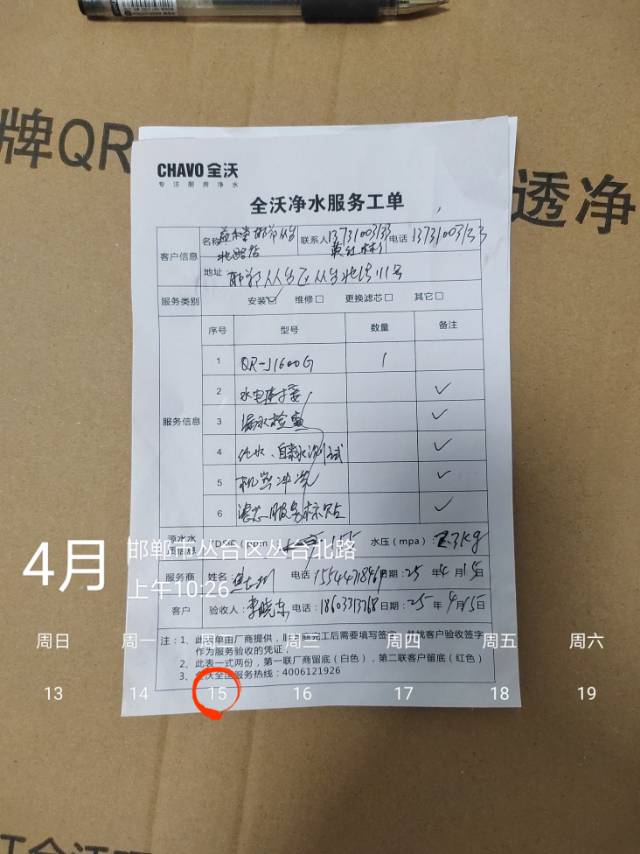 牌QR
透净
CHAVO 全沃
专注厨房净水
全沃净水服务工单
客户信息 名称 联系人 13731003133 电话 13731003133
北路店
地址 邯郸丛台区丛台北路111号
服务类别 安装☑ 维修□ 更换滤芯□ 其它□
服务信息 序号 型号 数量 备注
1 QR-J1600G 1
2 水电连接 ✓
3 漏水检查 ✓
4 纯水、自来水测试 ✓
5 机器冲洗 ✓
6 滤芯、服务标贴 ✓
原水水质信息 水压(mpa):
4月 邯郸市丛台区丛台北路
上午10:26
服务商 姓名 电话: 日期: 25年4月15日
客户 验收人: 李晓东 电话: 日期: 25年4月15日
注:1、此清单由厂商提供,
作为服务验收的凭证,
2、此表一式两份,第一联厂商留底(白色),第二联客户留底(红色)
3、全沃全国服务热线:4006121926
周日 周一 周三 周四 周五 周六
13 14 15 16 17 18 19